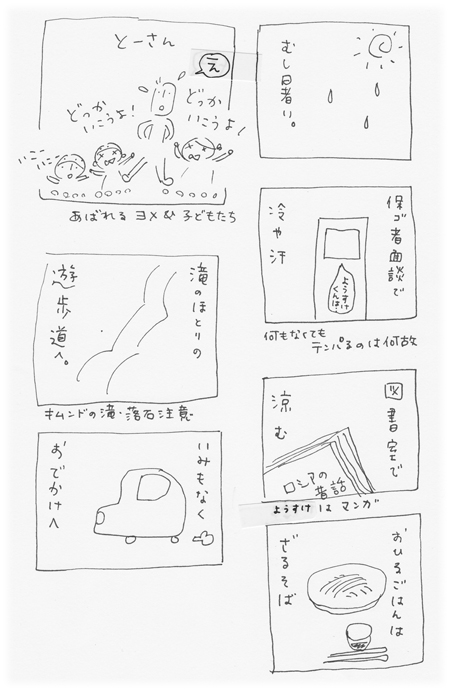 むし暑い。
保ゴ者面談で
冷や汗
ようすけくんは…
何もなくても
テンパるのは何故
図書室で
涼む
ロシアの
昔話
ようすけはマンガ
おひるごはんは
ざるそば
とーさん
え
どっか
いこうよ!
どっか
いこうよ!
いこいこ
あばれるヨメ&子どもたち
滝のほとりの
遊歩道へ。
キムンドの滝・落石注意
いみもなく
おでかけへ